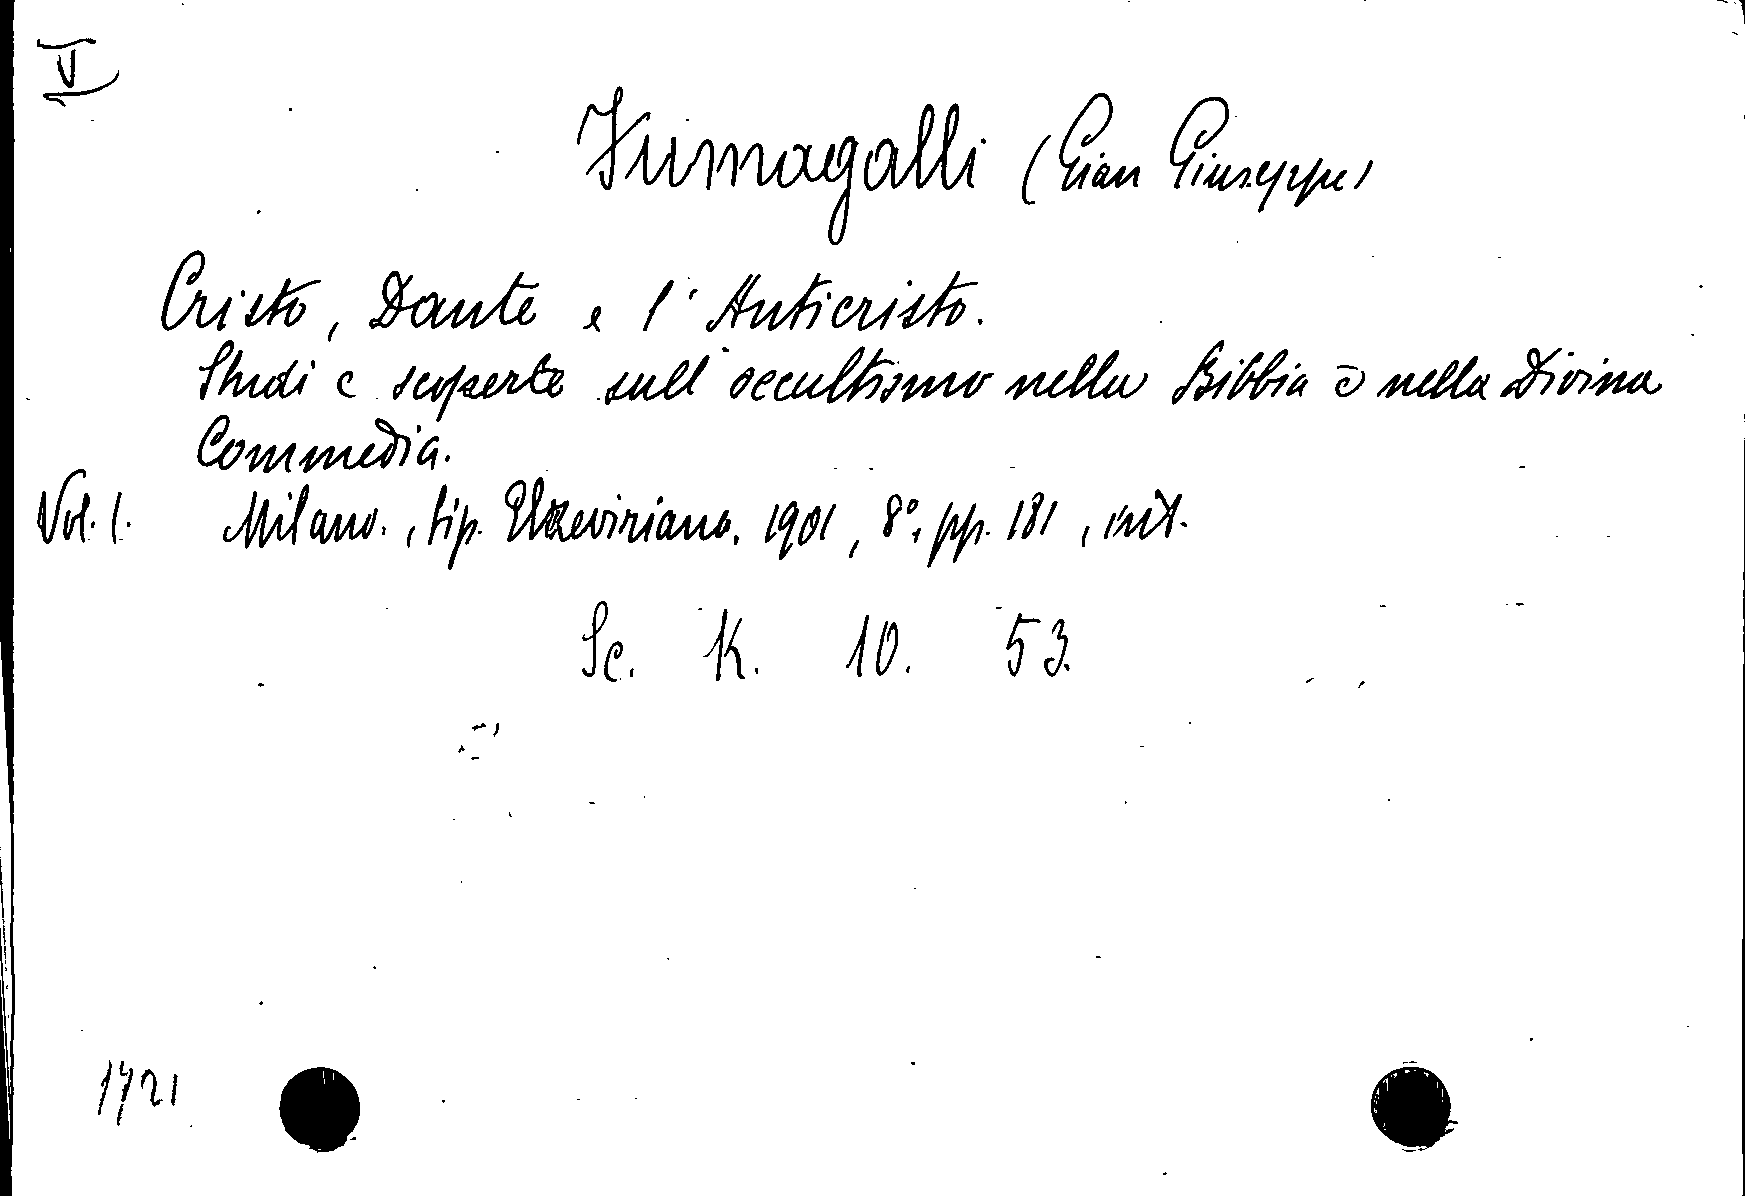 VI
Fumagalli (Gian Giuseppe)
Cristo, Dante e l'Anticristo.
Studi e scoperte sull'occultismo nella Bibbia e nella Divina
Commedia.
Vol. I. Milano., tip. Elzeviriana. 1901, 8°, pp. 181,
Sc. K. 10. 53.
1721